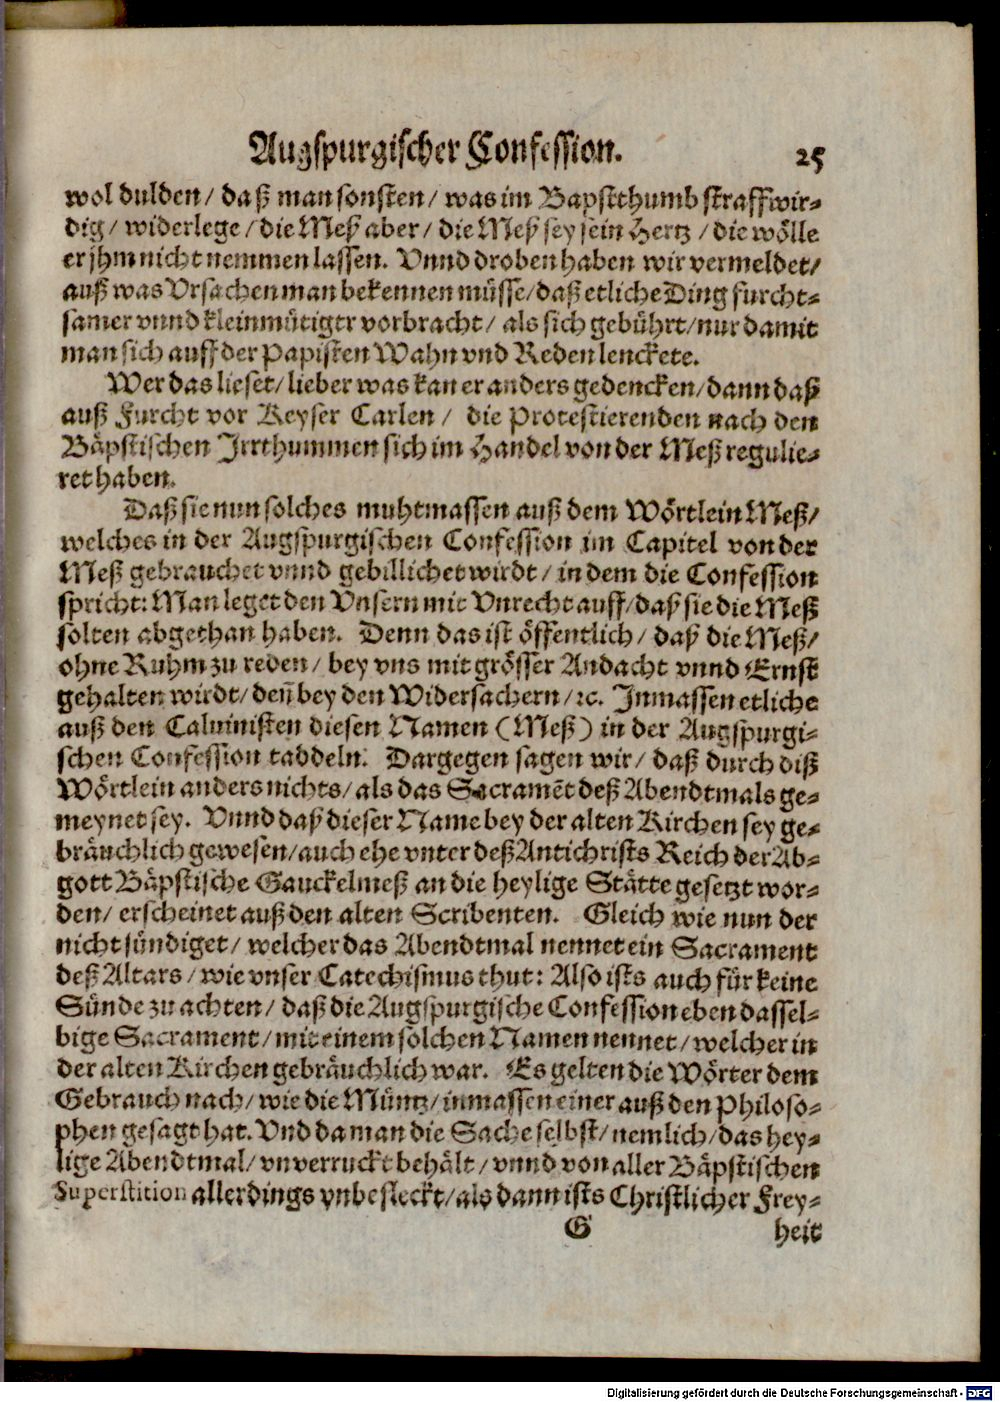 Augspurgischer Confession. 25
wol dulden/ daß man sonsten/ was im Bapstthumb straffwir-
dig/ widerlege/ die Meß aber/ die Meß sey sein Hertz/ die wölle
er jhm nicht nemmen lassen. Vnnd droben haben wir vermeldet/
auß was Vrsachen man bekennen müsse/ daß etliche Ding furcht-
samer vnnd kleinmütiger vorbracht/ als sich gebührt/ nur damit
man sich auff der Papisten Wahn vnd Reden lenckete.
Wer das lieset/ lieber was kan er anders gedencken/ dann daß
auß Furcht vor Keyser Carlen/ die Protestierenden nach den
Bäpstischen Irrthummen sich im Handel von der Meß regulie-
ret haben.
Daß sie nun solches muhtmassen auß dem Wörtlein Meß/
welches in der Augspurgischen Confession im Capitel von der
Meß gebrauchet vnnd gebillichet wirdt/ in dem die Confession
spricht: Man leget den Vnsern mit Vnrecht auff/ daß sie die Meß
solten abgethan haben. Denn das ist öffentlich/ daß die Meß/
ohne Ruhm zu reden/ bey vns mit grösser Andacht vnnd Ernst
gehalten wirdt/ deñ bey den Widersachern/ ꝛc. Inmassen etliche
auß den Caluinisten diesen Namen (Meß) in der Augspurgi-
schen Confession taddeln. Dargegen sagen wir/ daß durch diß
Wörtlein anders nichts/ als das Sacramēt deß Abendtmals ge-
meynet sey. Vnnd daß dieser Name bey der alten Kirchen sey ge-
bräuchlich gewesen/ auch ehe vnter deß Antichrists Reich der Ab-
gott Bäpstische Gauckelmeß an die heylige Stätte gesetzt wor-
den/ erscheinet auß den alten Scribenten. Gleich wie nun der
nicht sündiget/ welcher das Abendtmal nennet ein Sacrament
deß Altars/ wie vnser Catechismus thut: Also ists auch für keine
Sünde zu achten/ daß die Augspurgische Confession eben dassel-
bige Sacrament/ mit einem solchen Namen nennet/ welcher in
der alten Kirchen gebräuchlich war. Es gelten die Wörter dem
Gebrauch nach/ wie die Müntz/ inmassen einer auß den Philoso-
phen gesagt hat. Vnd da man die Sache selbst/ nemlich/ das hey-
lige Abendtmal/ vnverruckt behält/ vnnd von aller Bäpstischen
Superstition allerdings vnbefleckt/ als dann ists Christlicher Frey-
G heit
Digitalisierung gefördert durch die Deutsche Forschungsgemeinschaft - DFG